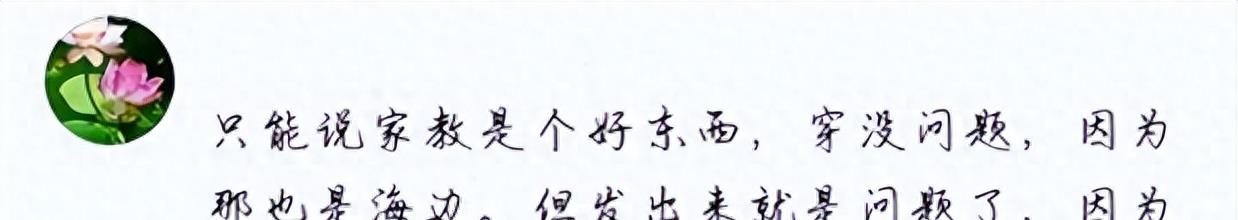 只能说家教是个好东西，穿没问题，因为
那也是海边。但发出来就是问题了，因为